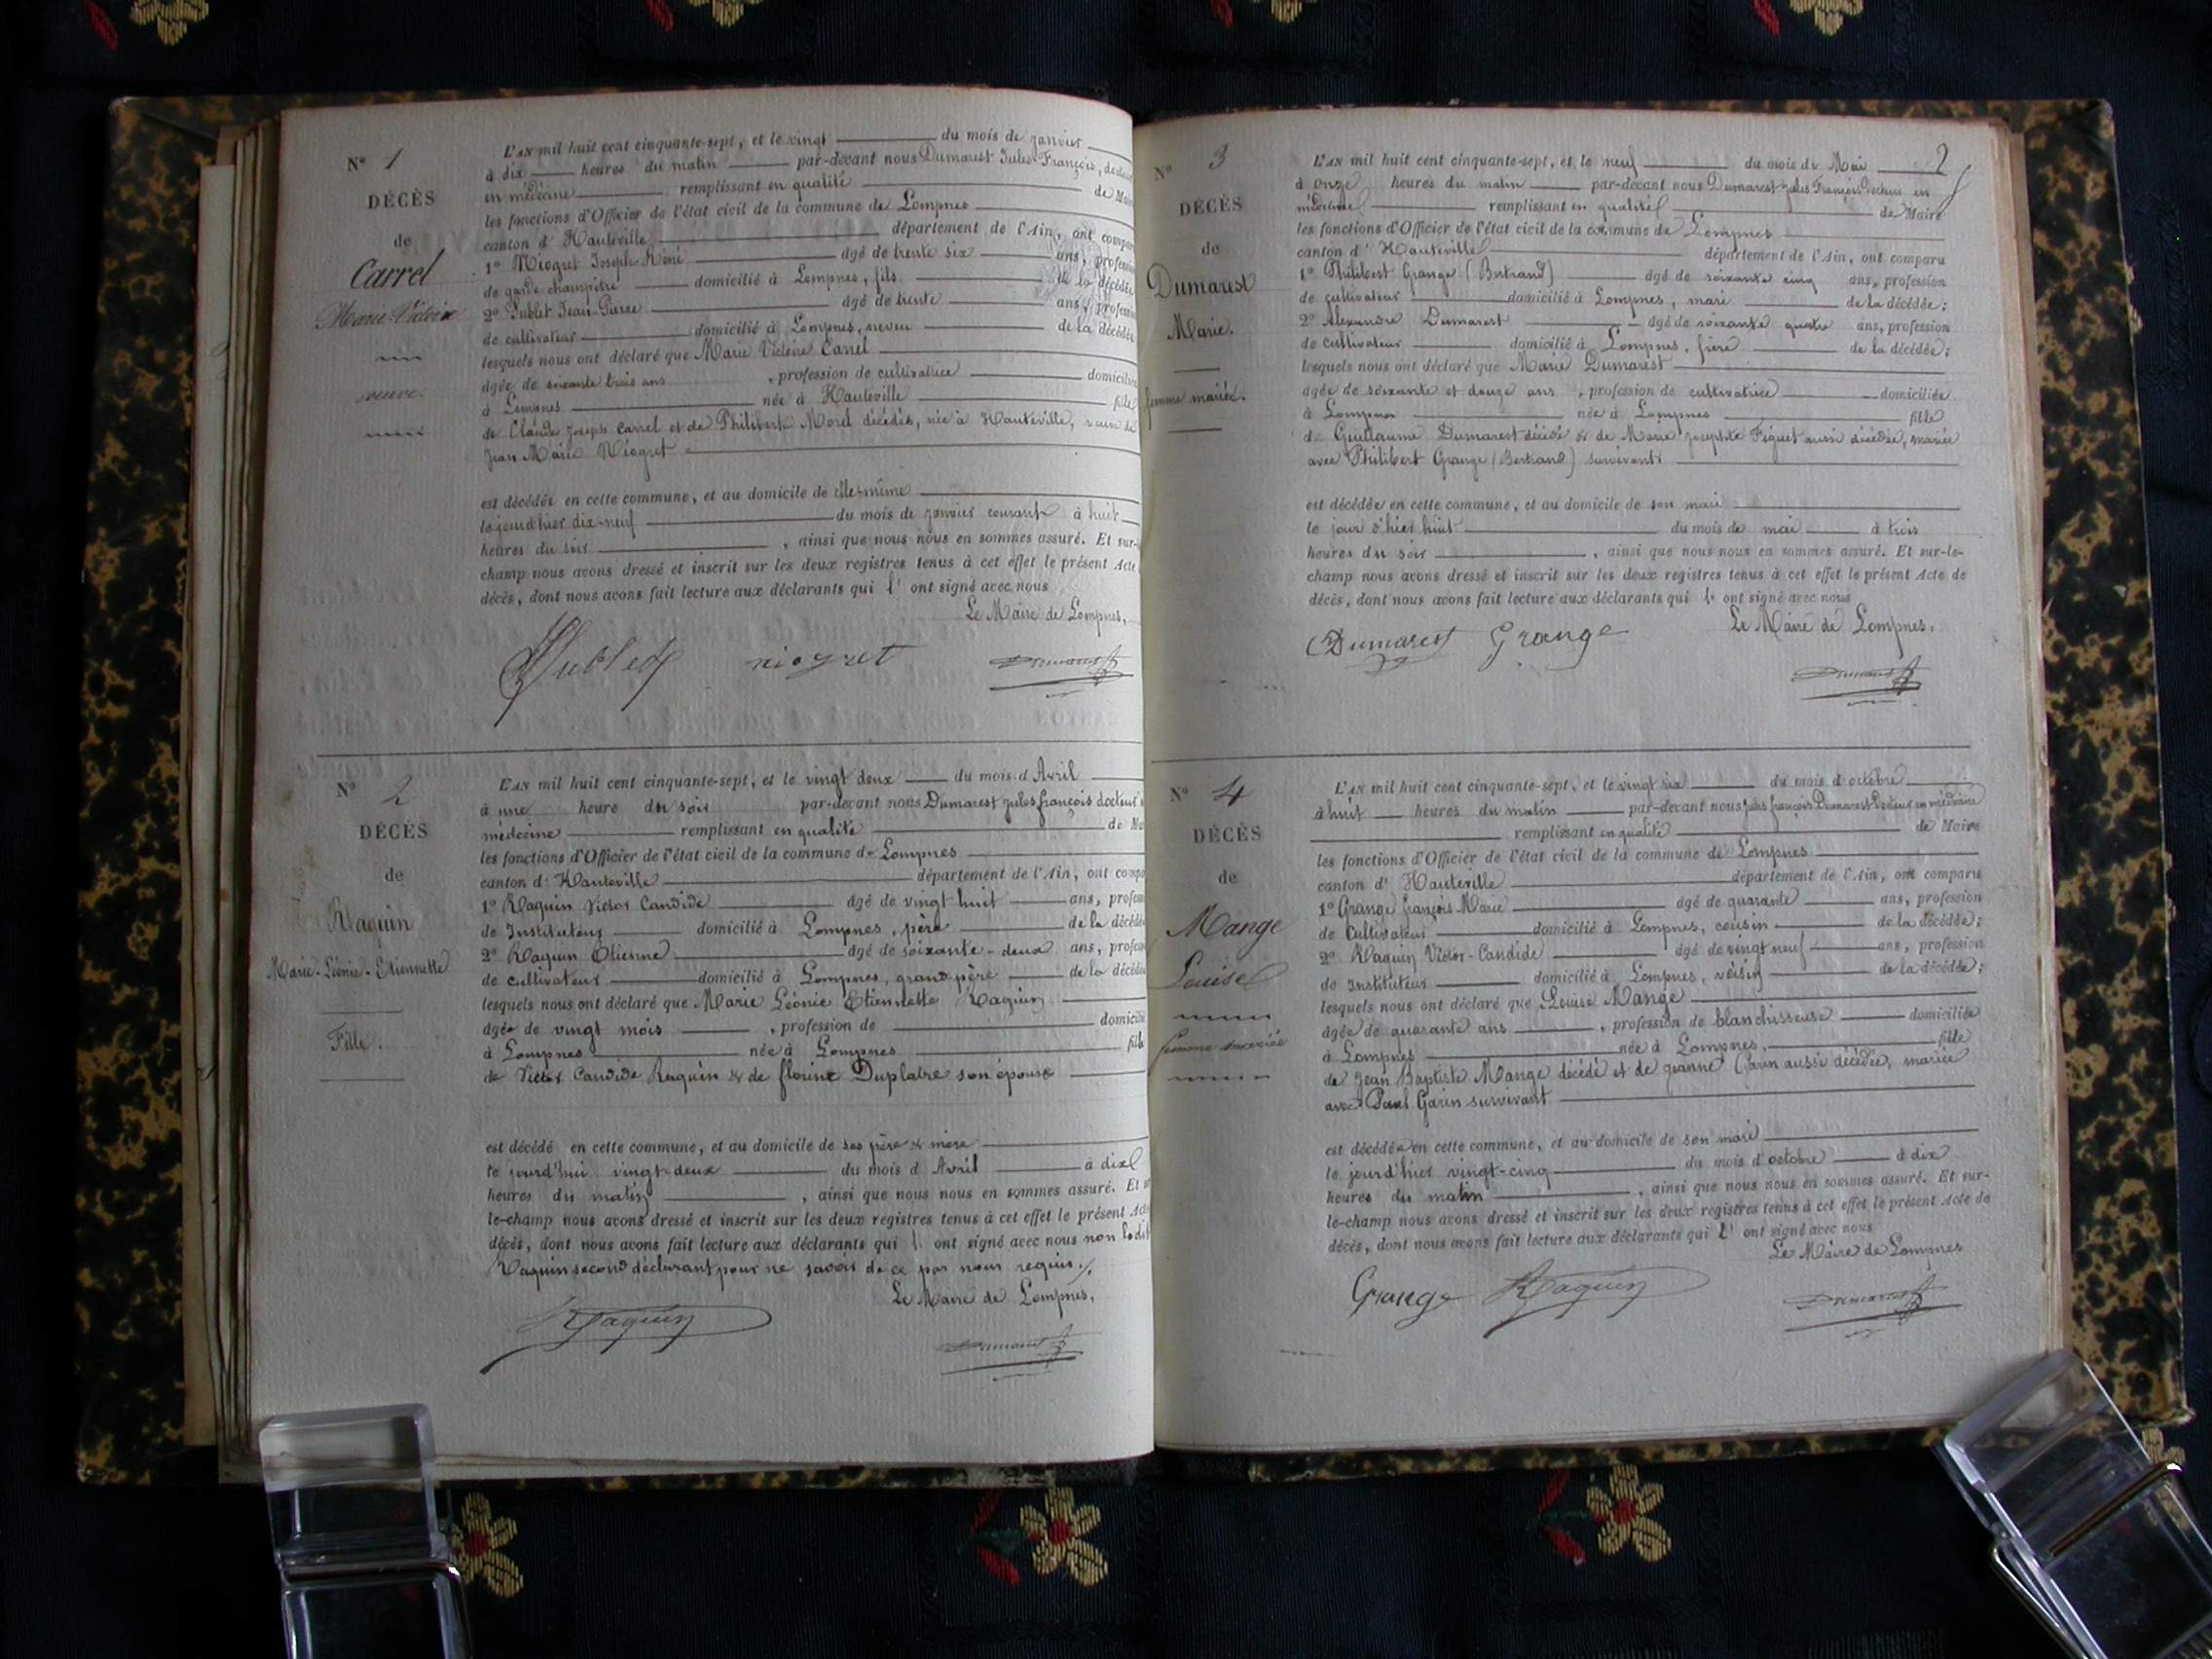 N° 1
DÉCÈS
de
Carrel
Marie Victoire
veuve.
L'AN mil huit cent cinquante-sept, et le vingt du mois de janvier
à dix heures du matin par-devant nous Dumarest Jules François, docteur
en médecine remplissant en qualité de Maire
les fonctions d'Officier de l'état civil de la commune de Lompnes
canton d'Hauteville département de l'Ain, ont comparu
1° Niogret Joseph René âgé de trente six ans, profession
de garde champêtre domicilié à Lompnes, fils de la décédée
2° Sublet Jean Pierre âgé de trente ans, profession
de cultivateur domicilié à Lompnes, neveu de la décédée
lesquels nous ont déclaré que Marie Victoire Carrel
âgée de soixante trois ans, profession de cultivatrice domiciliée
à Lompnes née à Hauteville fille
de Claude Joseph Carrel et de Philiberte Morel décédés, née à Hauteville, veuve de
Jean Marie Niogret
est décédée en cette commune, et au domicile de elle-même
le jourd'hier dix-neuf du mois de janvier courant à huit
heures du soir, ainsi que nous nous en sommes assuré. Et sur-
champ nous avons dressé et inscrit sur les deux registres tenus à cet effet le présent Acte
décès, dont nous avons fait lecture aux déclarants qui l'ont signé avec nous
Le Maire de Lompnes,
Sublet niogret Dumarest
N° 2
DÉCÈS
de
Raquin
Marie-Léonie-Etiennette
Fille.
L'AN mil huit cent cinquante-sept, et le vingt deux du mois d'Avril
à une heure du soir par-devant nous Dumarest jules françois docteur
médecine remplissant en qualité de Ma
les fonctions d'Officier de l'état civil de la commune de Lompnes
canton d'Hauteville département de l'Ain, ont compa
1° Raquin Victor Candide âgé de vingt huit ans, profess
de Instituteur domicilié à Lompnes, père de la décédée
2° Raquin Etienne âgé de soixante-deux ans, profess
de cultivateur domicilié à Lompnes, grand père de la décédée
lesquels nous ont déclaré que Marie Léonie Etiennette Raquin
âgée de vingt mois, profession de domicilié
à Lompnes née à Lompnes fille
de Victor Candide Raquin & de florine Duplatre son épouse
est décédé en cette commune, et au domicile de ses père & mère
le jourd'hui vingt-deux du mois d'Avril à dix
heures du matin, ainsi que nous nous en sommes assuré. Et
le-champ nous avons dressé et inscrit sur les deux registres tenus à cet effet le présent Acte
décès, dont nous avons fait lecture aux déclarants qui l'ont signé avec nous non ledit
Raquin second déclarant pour ne savoir de ce par nous requis.
Le Maire de Lompnes,
Raquin Dumarest
2
N° 3
DÉCÈS
de
Dumarest
Marie.
femme mariée.
L'AN mil huit cent cinquante-sept, et le neuf du mois de Mai
à onze heures du matin par-devant nous Dumarest jules François Docteur en
médecine remplissant en qualité de Maire
les fonctions d'Officier de l'état civil de la commune de Lompnes
canton d'Hauteville département de l'Ain, ont comparu
1° Philibert Grange (Bertrand) âgé de soixante cinq ans, profession
de cultivateur domicilié à Lompnes, mari de la décédée;
2° Alexandre Dumarest âgé de soixante quatre ans, profession
de cultivateur domicilié à Lompnes, frère de la décédée;
lesquels nous ont déclaré que Marie Dumarest
âgée de soixante et douze ans, profession de cultivatrice domiciliée
à Lompnes née à Lompnes fille
de Guillaume Dumarest décédé & de Marie Josephte Figuet aussi décédée, mariée
avec Philibert Grange (Bertrand) survivant
est décédée en cette commune, et au domicile de son mari
le jour d'hier huit du mois de mai à trois
heures du soir, ainsi que nous nous en sommes assuré. Et sur-le-
champ nous avons dressé et inscrit sur les deux registres tenus à cet effet le présent Acte de
décès, dont nous avons fait lecture aux déclarants qui l'ont signé avec nous
Le Maire de Lompnes,
Dumarest Grange Dumarest
N° 4
DÉCÈS
de
Mange
Louise
femme mariée
L'AN mil huit cent cinquante-sept, et le vingt six du mois d'octobre
à huit heures du matin par-devant nous jules françois Dumarest Docteur en médecine
remplissant en qualité de Maire
les fonctions d'Officier de l'état civil de la commune de Lompnes
canton d'Hauteville département de l'Ain, ont comparu
1° Grange françois Marie âgé de quarante ans, profession
de Cultivateur domicilié à Lompnes, cousin de la décédée;
2° Raquin Victor-Candide âgé de vingt neuf ans, profession
de Instituteur domicilié à Lompnes, voisin de la décédée;
lesquels nous ont déclaré que Louise Mange
âgée de quarante ans, profession de blanchisseuse domiciliée
à Lompnes née à Lompnes, fille
de Jean Baptiste Mange décédé et de jeanne Garin aussi décédée, mariée
avec Paul Garin survivant
est décédée en cette commune, et au domicile de son mari
le jourd'hier vingt-cinq du mois d'octobre à dix
heures du matin, ainsi que nous nous en sommes assuré. Et sur-
le-champ nous avons dressé et inscrit sur les deux registres tenus à cet effet le présent Acte de
décès, dont nous avons fait lecture aux déclarants qui l'ont signé avec nous
Le Maire de Lompnes
Grange Raquin Dumarest